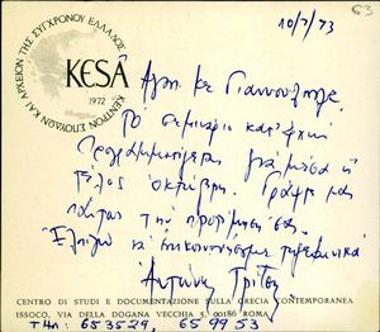 63
10/7/73
ΚΕΝΤΡΟΝ ΣΠΟΥΔΩΝ ΚΑΙ ΑΡΧΕΙΟΝ ΤΗΣ ΣΥΓΧΡΟΝΟΥ ΕΛΛΑΔΟΣ
KESA
1972
Αγαπ. κε Γιαννουλόπουλε,
Το σεμινάριο κατ' αρχή
προγραμματίζεται για μέσα ή
τέλος Οκτώβρη. Γράψτε μας
πάντως την προτίμησή σας.
Ελπίζω να επικοινωνήσουμε τηλεφωνικά
Αντώνης Τρίτσης
CENTRO DI STUDI E DOCUMENTAZIONE SULLA GRECIA CONTEMPORANEA
ISSOCO, VIA DELLA DOGANA VECCHIA 5, 00186 ROMA
Τηλ: 653529, 659953